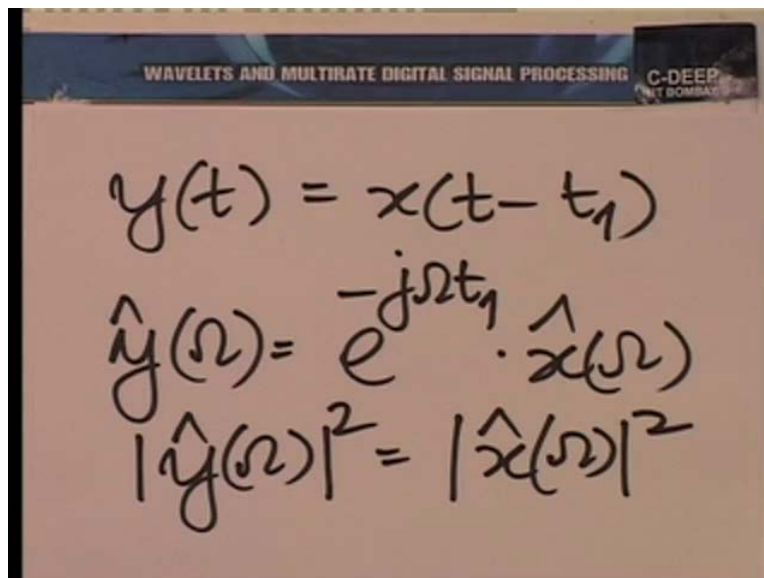 WAVELETS AND MULTIRATE DIGITAL SIGNAL PROCESSING
C-DEEP
IIT BOMBAY
y(t) = x(t - t₁)
ŷ(Ω) = e^{-jΩt₁} · x̂(Ω)
|ŷ(Ω)|² = |x̂(Ω)|²